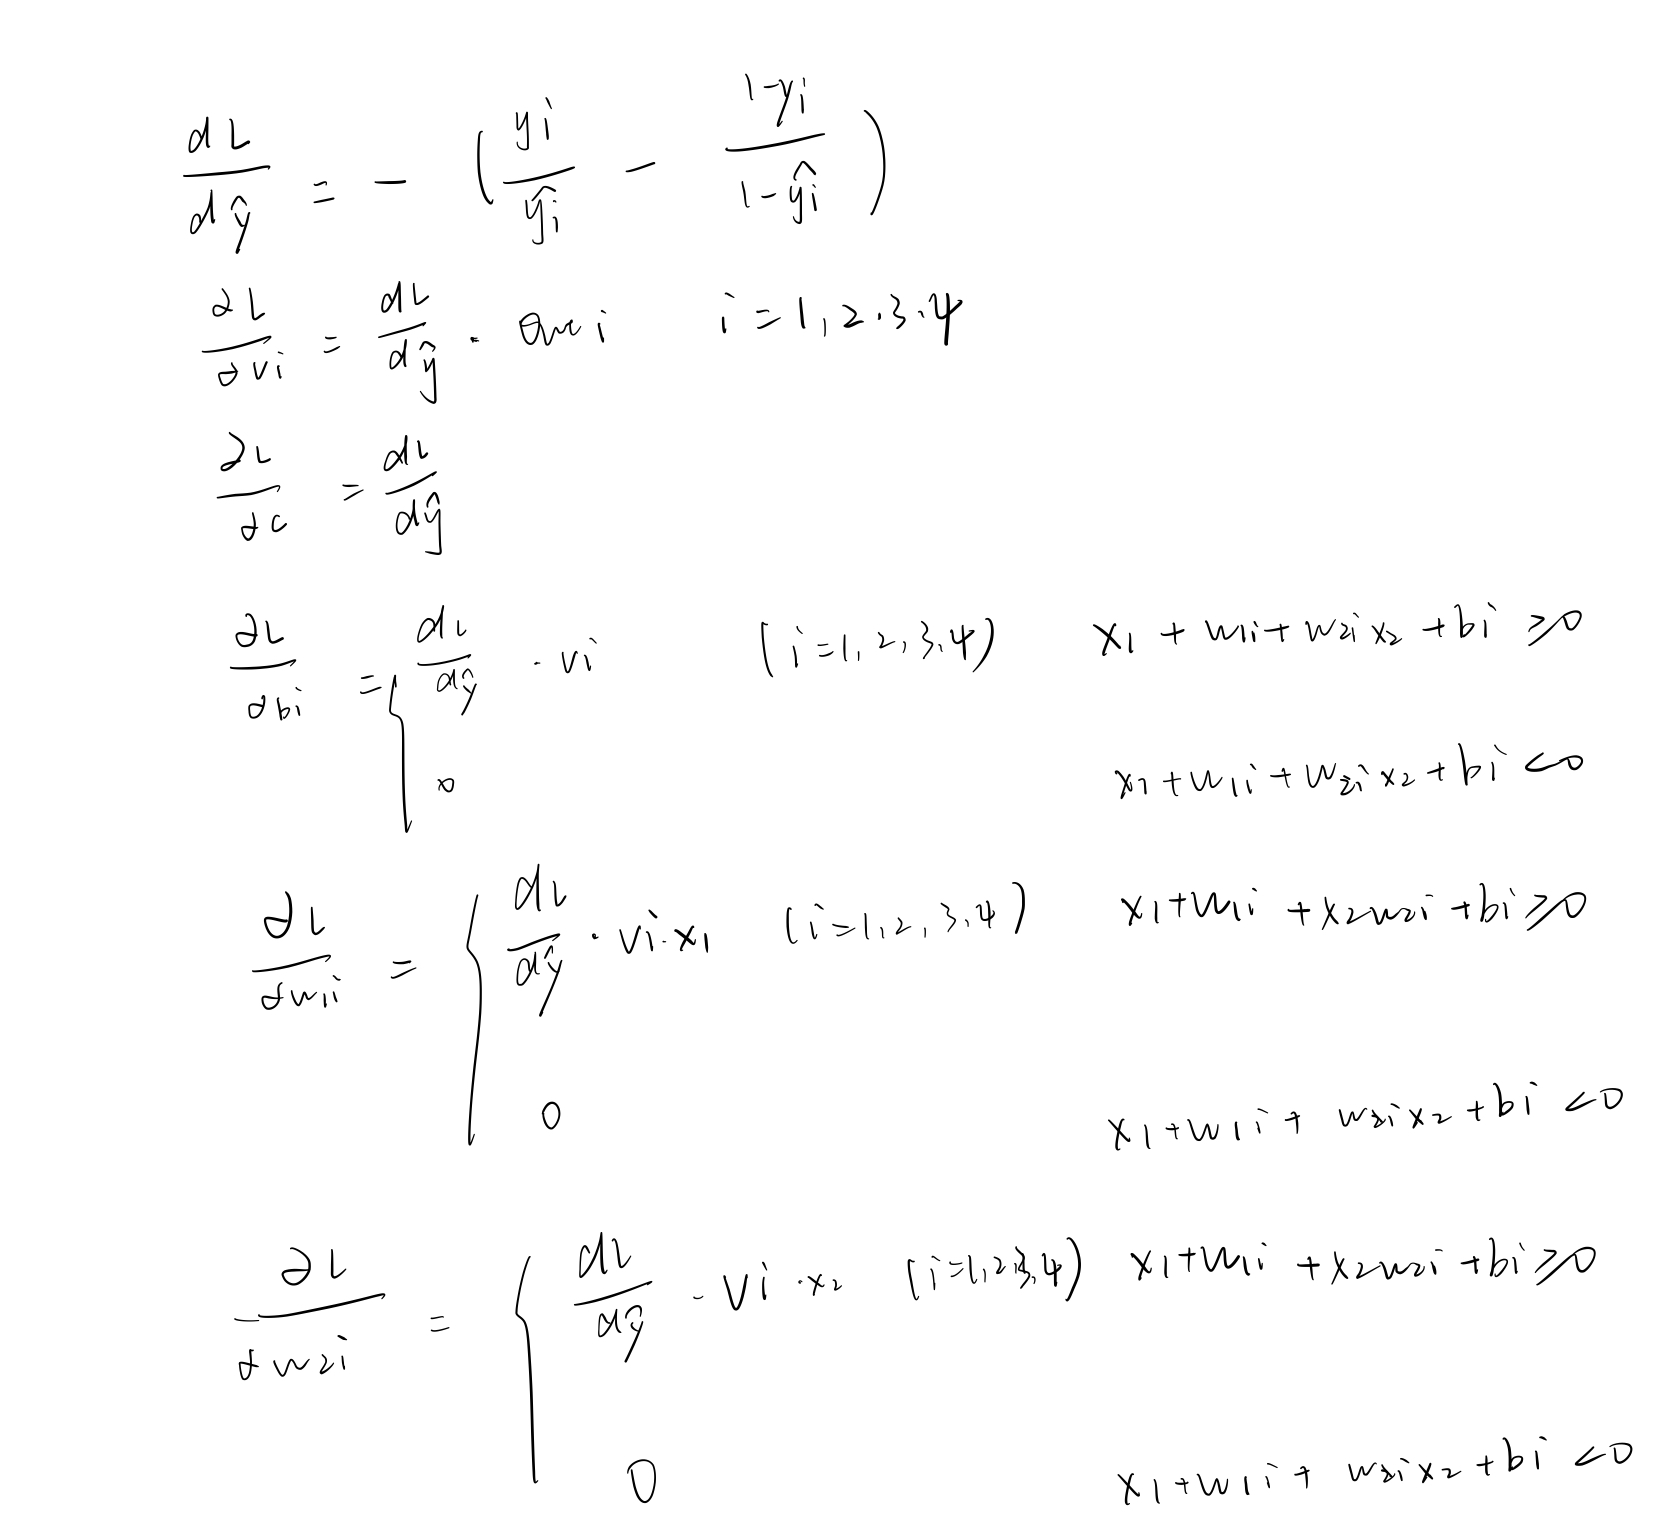 dL/dŷ = - (yi/ŷi - 1-yi/1-ŷi)
∂L/∂vi = dL/dŷ · outi i=1,2.3.4
∂L/∂c = dL/dŷ
∂L/∂bi = { dL/dŷ · vi (i=1,2,3,4) x1 + w1i + w2i x2 + bi ≥0
0 x1 + w1i + w2i x2 + bi <0
∂L/∂w1i = { dL/dŷ · vi·x1 (i=1,2,3,4) x1+w1i + x2w2i + bi ≥0
0 x1+w1i + w2i x2 + bi <0
∂L/∂w2i = { dL/dŷ · vi ·x2 (i=1,2,3,4) x1+w1i + x2w2i + bi ≥0
0 x1+w1i + w2i x2 + bi <0